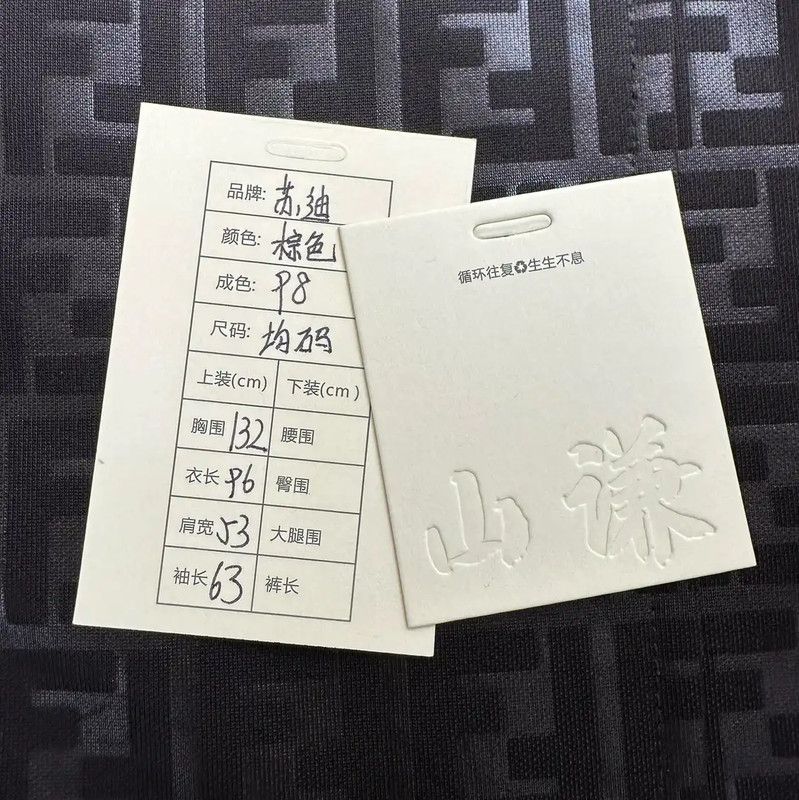 品牌: 苏.䌷
颜色: 棕色
成色: 98
尺码: 均码
上装(cm) 下装(cm)
胸围 132 腰围
衣长 96 臀围
肩宽 53 大腿围
袖长 63 裤长
循环往复♻生生不息
山谦